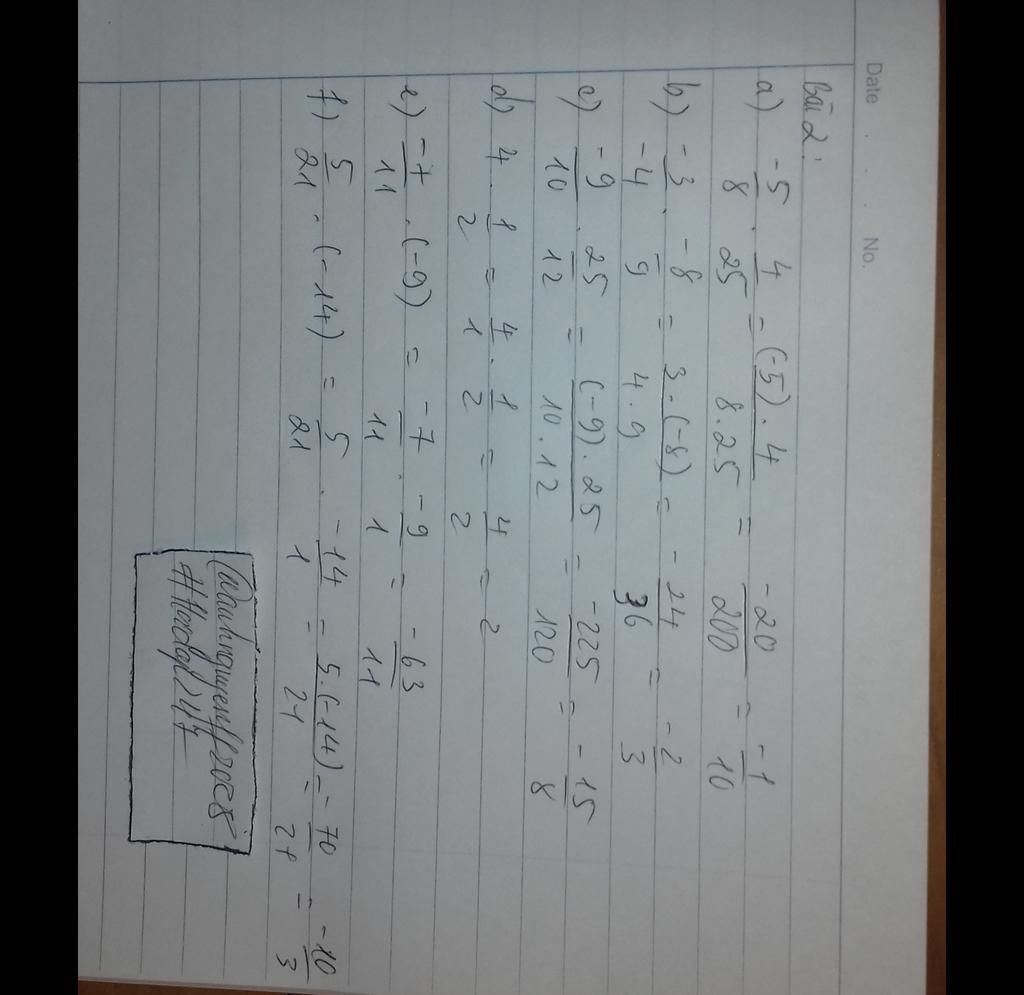 Date . . . No.
Bài 2:
a) -5/8 . 4/25 = (-5).4/8.25 = -20/200 = -1/10
b) -3/-4 . -8/9 = 3.(-8)/4.9 = -24/36 = -2/3
c) -9/10 . 25/12 = (-9).25/10.12 = -225/120 = -15/8
d) 4 . 1/2 = 4/1 . 1/2 = 4/2 = 2
e) -7/11 . (-9) = -7/11 . -9/1 = -63/11
f) 5/21 . (-14) = 5/21 . -14/1 = 5.(-14)/21 = -70/21 = -10/3